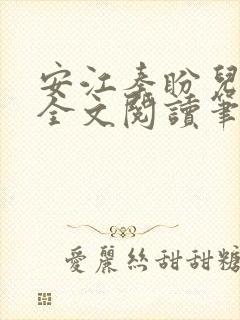 安江秦盼兒
全文閱讀筆
愛麗絲甜甜糖